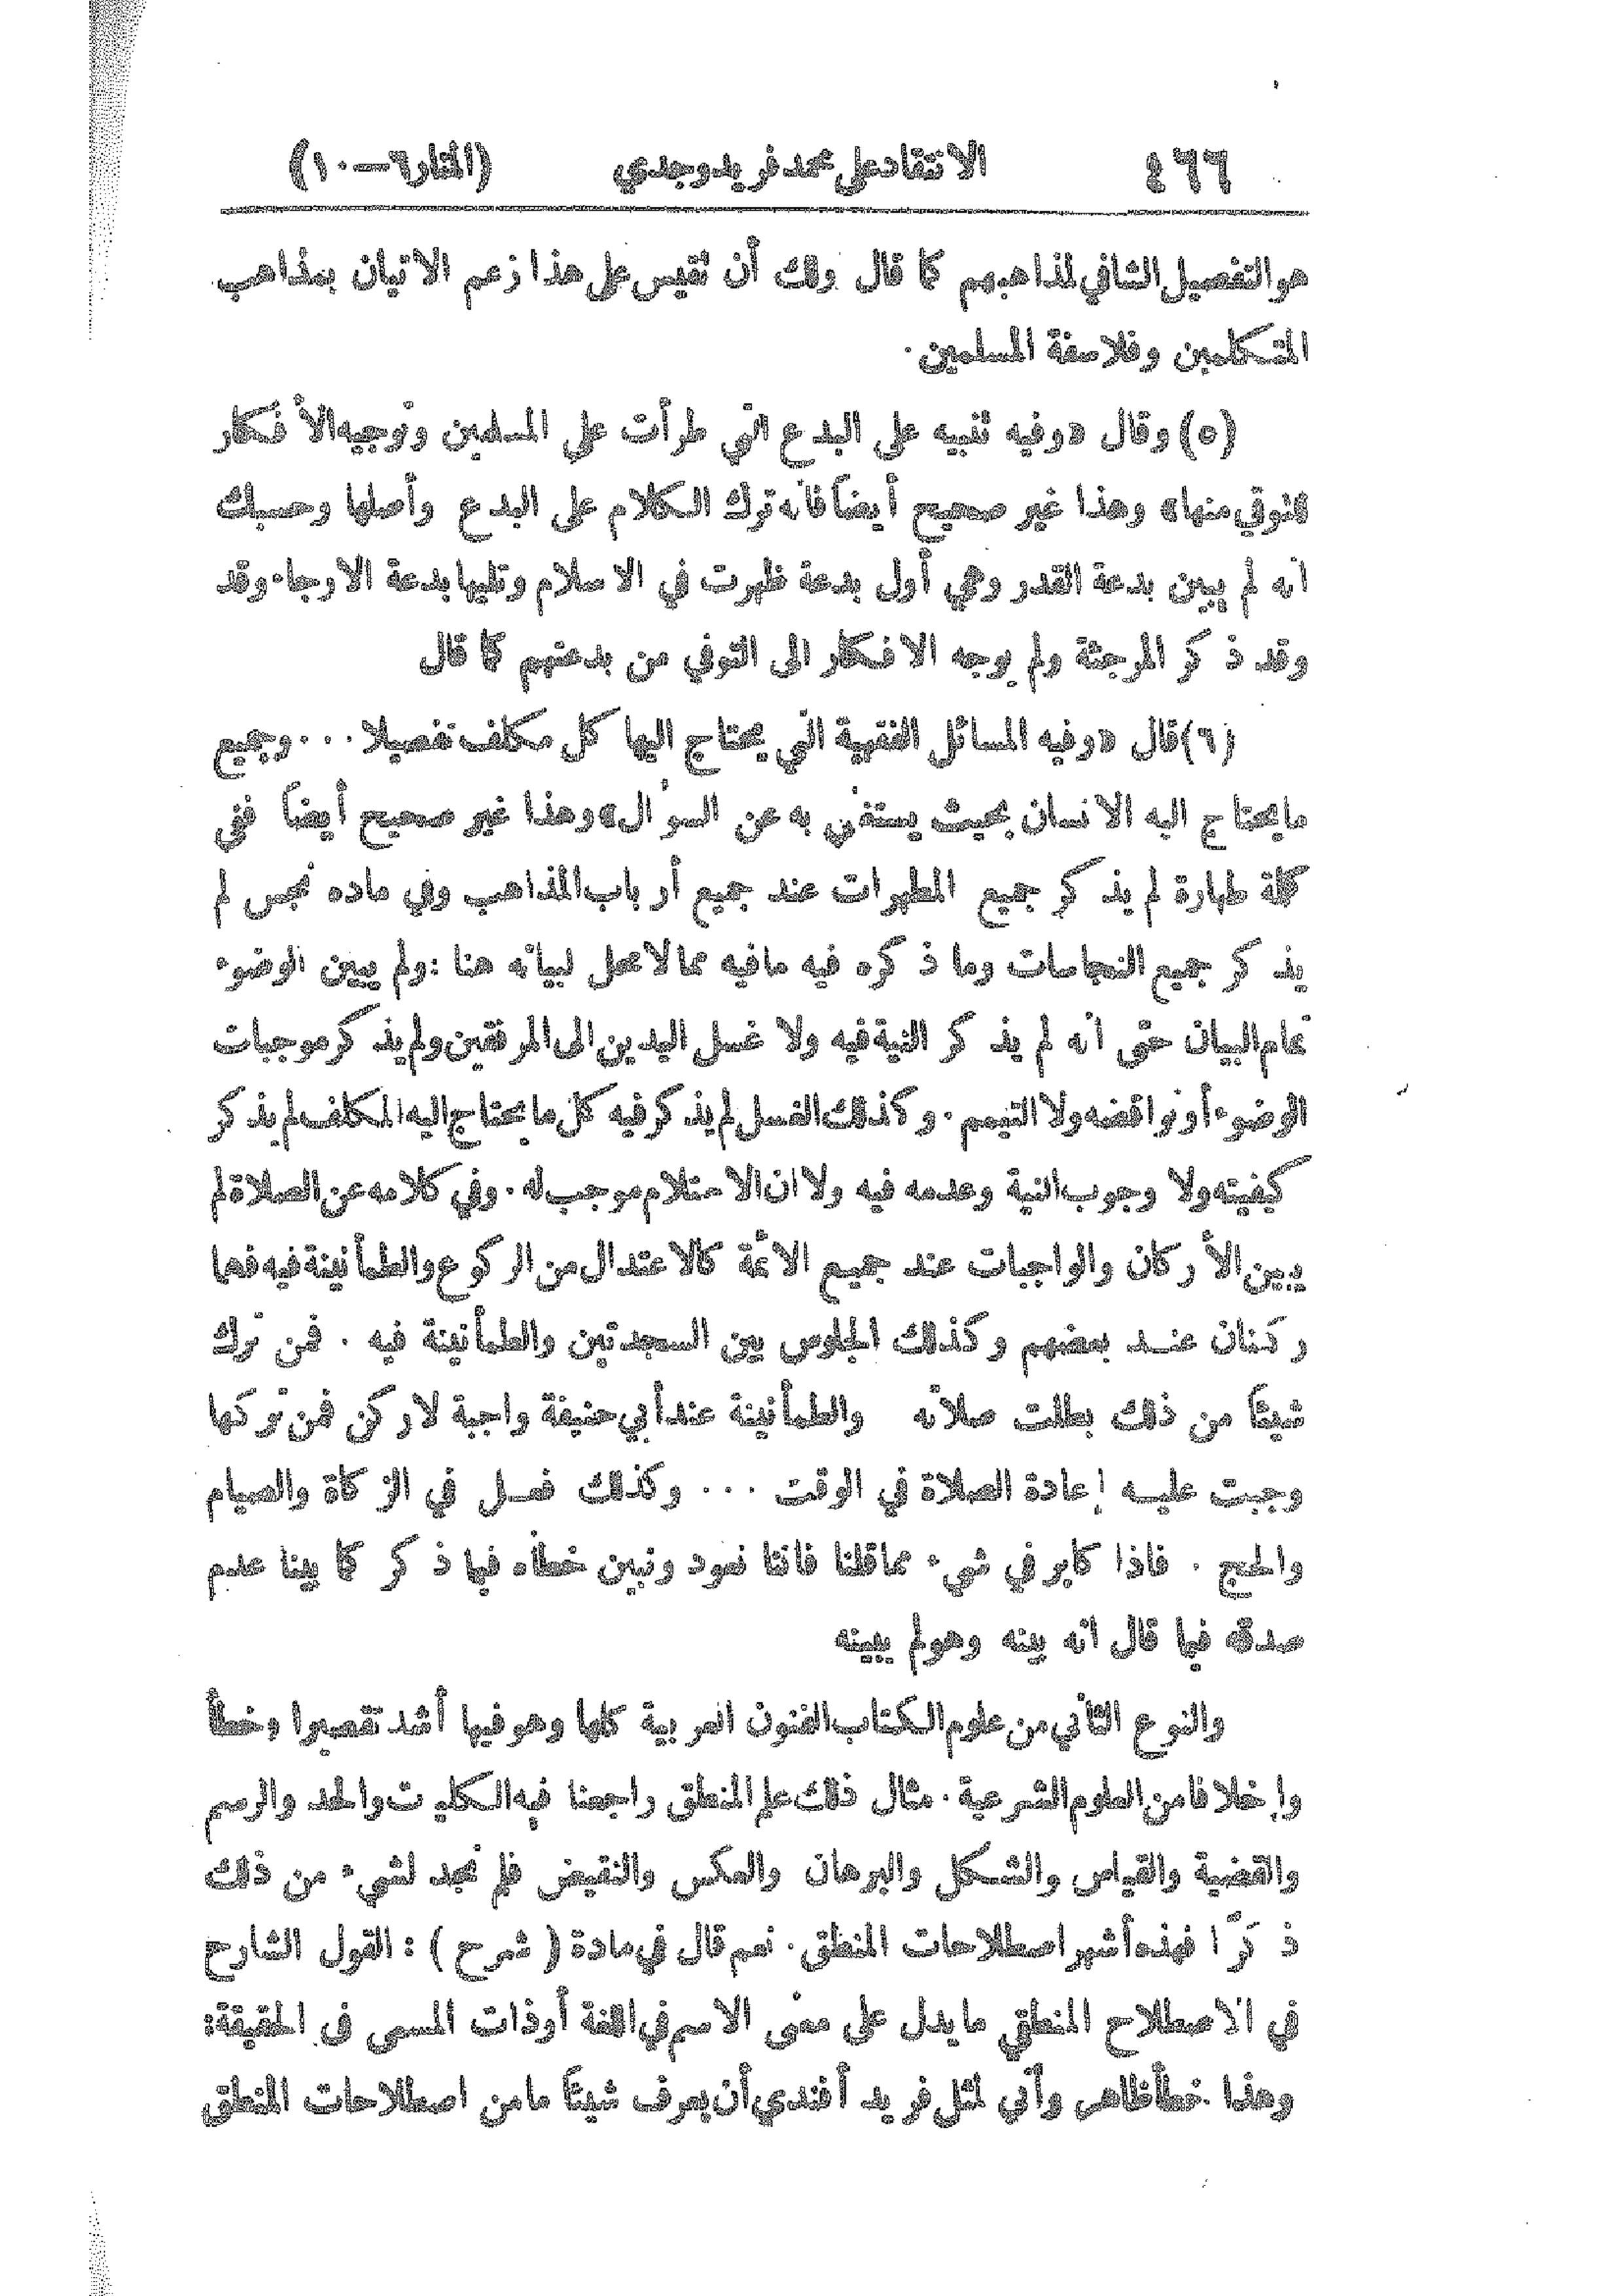 ٤٦٦ الانتقاد على محمد فريد وجدي (المنار ٦ — ١٠)
هو التفصيل الشافي لمذاهبهم كما قال ولك أن تقيس على هذا زعم الاتيان بمذاهب
المتكلمين وفلاسفة المسلمين .
(٥) وقال «وفيه تنبيه على البدع التي طرأت على المسلمين وتوجيه الأفكار
للتوقي منها» وهذا غير صحيح أيضاً فانه ترك الكلام على البدع وأصلها وحسبك
انه لم يبين بدعة القدر وهي أول بدعة ظهرت في الاسلام وتليها بدعة الارجاء وقد
وقد ذكر المرجئة ولم يوجه الافكار الى التوقي من بدعتهم كما قال
(٦) قال «وفيه المسائل الفقهية التي يحتاج اليها كل مكلف تفصيلا ... وجميع
ما يحتاج اليه الانسان بحيث يستغني به عن السؤال» وهذا غير صحيح أيضاً ففي
كلمة طهارة لم يذكر جميع المطهرات عند جميع أرباب المذاهب وفي ماده نجس لم
يذكر جميع النجاسات وما ذكره فيه مافيه مما لا محل لبيانه هنا : ولم يبين الوضوء
تمام البيان حتى انه لم يذكر النية فيه ولا غسل اليدين الى المرفقين ولم يذكر موجبات
الوضوء أو نواقضه ولا التيمم . وكذلك الغسل لم يذكر فيه كل ما يحتاج اليه المكلف لم يذكر
كيفيته ولا وجوب النية وعدمه فيه ولا ان الاحتلام موجب له . وفي كلامه عن الصلاة لم
يبين الأركان والواجبات عند جميع الائمة كالاعتدال من الركوع والطمأنينة فيه فهما
ركنان عند بعضهم وكذلك الجلوس بين السجدتين والطمأنينة فيه . فمن ترك
شيئاً من ذلك بطلت صلاته والطمأنينة عند أبي حنيفة واجبة لا ركن فمن تركها
وجبت عليه إعادة الصلاة في الوقت ... وكذلك فعل في الزكاة والصيام
والحج . فاذا كابر في شيء مما قلنا فاننا نعود ونبين خطأه فيما ذكر كما بينا عدم
صدقه فيما قال انه بينه وهو لم يبينه
والنوع الثاني من علوم الكتاب الفنون العربية كلها وهو فيها أشد تقصيرا وخطأ
وإخلافا من العلوم الشرعية . مثال ذلك علم المنطق راجعنا فيه الكليات والحد والرسم
والقضية والقياس والشكل والبرهان والعكس والنقيض فلم نجد لشيء من ذلك
ذكرًا فهذه أشهر اصطلاحات المنطق . نعم قال في مادة (شرح) : القول الشارح
في الاصطلاح المنطقي ما يدل على معنى الاسم في اللغة أو ذات المسمى في الحقيقة :
وهذا خطأ ظاهر وأنى لمثل فريد أفندي أن يعرف شيئاً ما من اصطلاحات المنطق